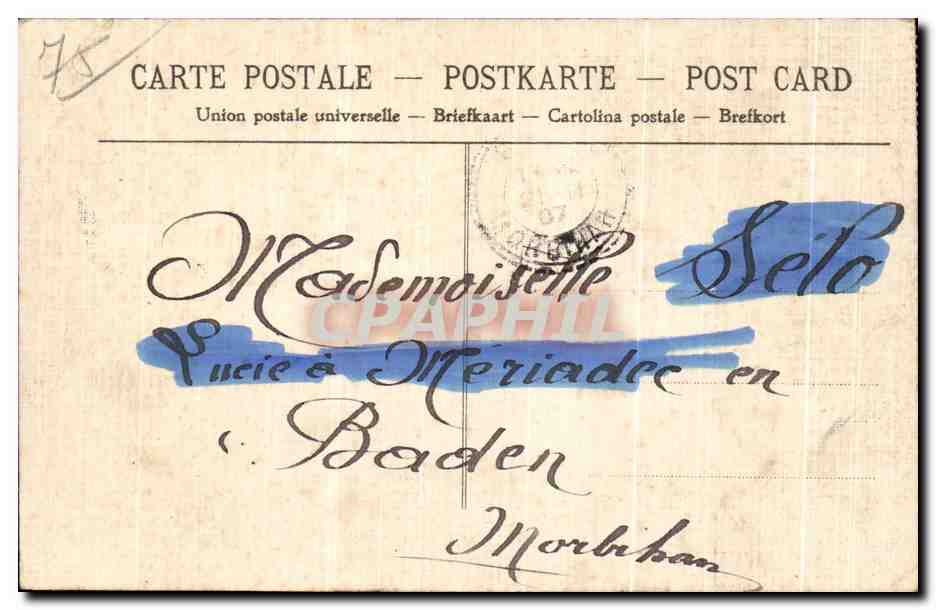 75
CARTE POSTALE — POSTKARTE — POST CARD
Union postale universelle — Briefkaart — Cartolina postale — Brefkort
07
MORBIHAN
Mademoiselle Sélo
CPAPHIL
Lucie à Mériadec en
Baden
Morbihan